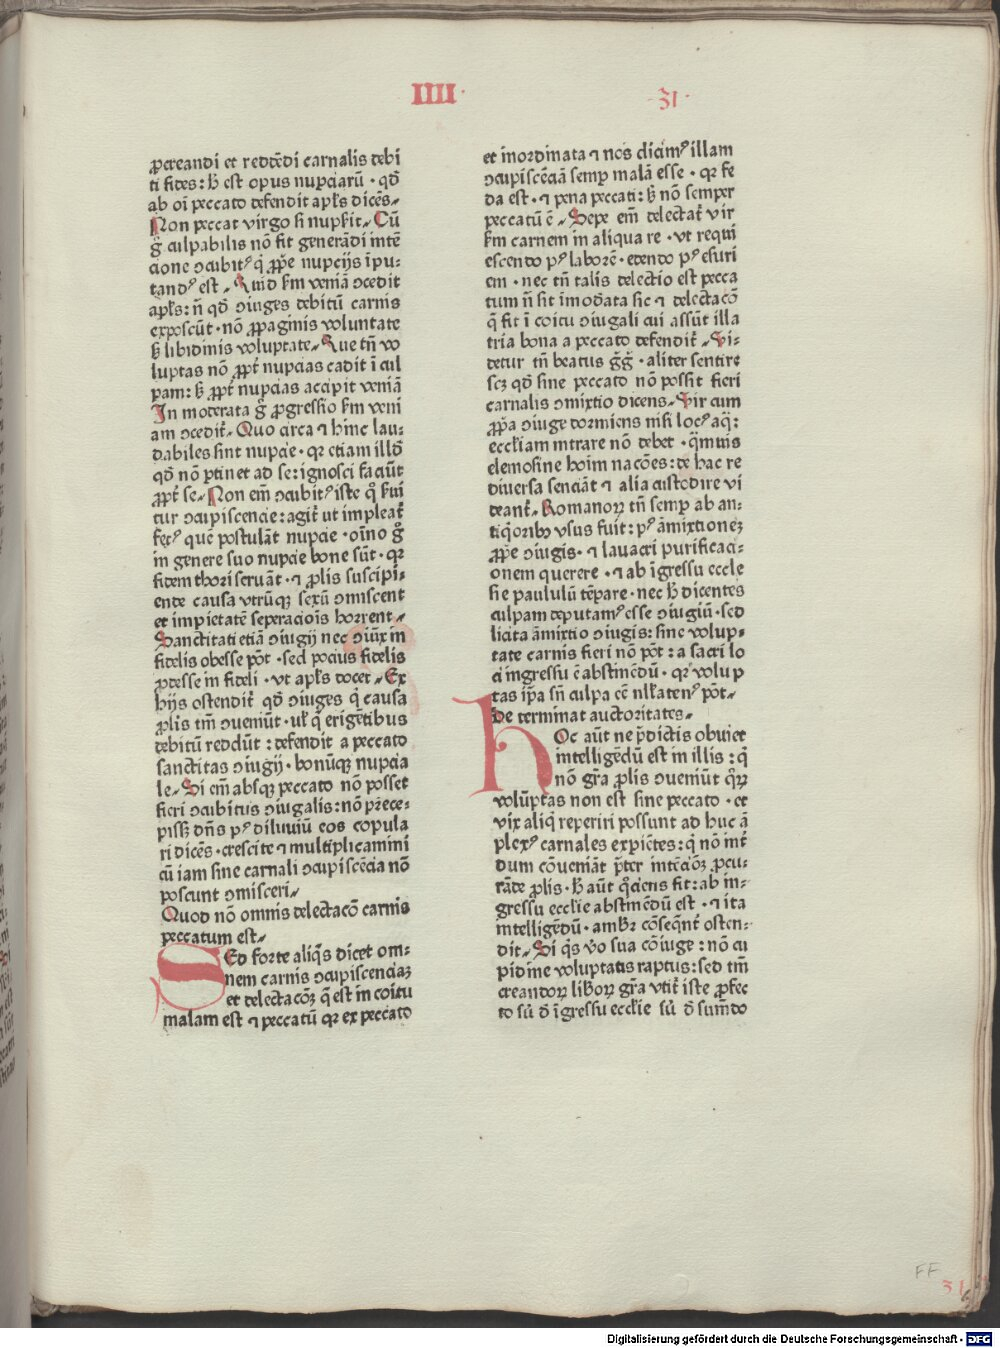 IIII · 31 ·
ꝓcreandi et reddēdi carnalis debi
ti fides : h̄ est opus nupciarū · qd̄
ab oī peccato defendit apl̄s dicēs ·
Non peccat virgo si nupſit · Cū
g̊ culpabilis nō sit generādi intē
cione ↄcubitꝰ q̄ ꝓp̄e nupcijs īpu-
tandꝰ est · Quid ſm veniā ↄcedit
apl̄s : n̄ qd̄ ↄiuges debitū carnis
exposcūt · nō ꝓpaginis voluntate
s̄ libidinis voluptate · Que tn̄ vo
luptas nō ꝓpt̄ nupcias cadit ī cul
pam : s̄ ꝓpt̄ nupcias accipit veniā
In moderata g̊ ꝓgressio ſm veni
am ↄcedit̄ · Quo circa ⁊ hinc lau-
dabiles sint nupcie · qꝛ etiam illd̄
qd̄ nō ꝑtinet ad se : ignosci faciūt
ꝓpt̄ se · Non em̄ ↄcubitꝰ iste q̊ ſui
tur ↄcupiscencie : agit̄ ut impleat̄
fetꝰ quē postulāt nupcie · oīno g̊
in genere suo nupcie bone sūt · qꝛ
fidem thori seruāt · ⁊ ꝓlis suscipi-
ende causa vtrūqꝫ sexū ↄmiscent
et impietatē seperacioīs horrent ·
Sanctitati etiā ↄiugij nec ↄiūx in
fidelis obesse pōt · sed pocius fidelis
ꝓdesse in fideli · vt apl̄s docet · Ex
hijs ostendit̄ qd̄ ↄiuges q̄ causa
ꝓlis tm̄ ↄueniūt · ul̓ q̄ erigētibus
debitū reddūt : defendit a peccato
sanctitas ↄiugij · bonūqꝫ nupcia
le · Si em̄ absqꝫ peccato nō posset
fieri ↄcubitus ↄiugalis : nō p̄cece-
pissꝫ dn̄s pꝰ diluuiū eos copula
ri dicēs · crescite ⁊ multiplicamini
cū iam sine carnali ↄcupiscēcia nō
poscunt ↄmisceri ·
Quod nō omnis delectacō carnis
peccatum est ·
SEd forte aliq̄s dicet om-
nem carnis ↄcupiscenciaꝫ
et delectacōꝫ q̄ est in coitu
malam est ⁊ peccatū qꝛ ex peccato
et inordinata ⁊ nos dicimꝰ illam
ↄcupiscēciā semꝑ malā esse · qꝛ fe
da est · ⁊ pena peccati : s̄ nō semper
peccatū ē · Sepe em̄ delectat̄ vir
ſm carnem in aliqua re · vt requi
escendo pꝰ laborē · edendo pꝰ esuri
em · nec tn̄ talis delectio est pecca
tum n̄ sit īmod̄ata sic ⁊ delectacō
q̄ fit ī coitu ↄiugali cui assūt illa
tria bona a peccato defendit̄ · Vi-
detur tn̄ beatus ḡḡ · aliter sentire
scꝫ qd̄ sine peccato nō possit fieri
carnalis ↄmixtio dicens · Vir cum
ꝓpa ↄiuge dormiens nisi locꝰ aq̄ :
eccl̄iam intrare nō debet · q̄muis
elemosine hoīm nacōes : de hac re
diuersa senciāt ⁊ alia custodire vi
deant̄ · Romanoꝝ tn̄ semꝑ ab an-
tiq̄oribꝰ vsus fuit : pꝰ āmixtioneꝫ
ꝓp̄e ↄiugis · ⁊ lauacri purificaci-
onem querere · ⁊ ab īgressu eccle
sie paululū tēpare · nec h̄ dicentes
culpam deputamꝰ esse ↄiugiū · sed
licita āmixtio ↄiugis : sine volup-
tate carnis fieri nō pōt : a sacri lo
ci ingressu ē abstinēdū · qꝛ volup
tas ip̄a sn̄ culpa eē nl̓latenꝰ pōt ·
De terminat auctoritates ·
HOc aūt ne p̄dictis obuiet
intelligēdū est in illis : q̄
nō gr̄a ꝓlis ↄueniūt q̄ꝝ
volūptas non est sine peccato · et
vix aliq̄ reperiri possunt ad huc ā
plexꝰ carnales expictes : q̄ nō int̄
dum cōueniāt p̄ter intēcōꝫ ꝓcu-
rāde ꝓlis · h̄ aūt q̊ciens fit : ab in-
gressu eccl̄ie abstinēdū est · ⁊ ita
intelligēdū · ambꝛ̄ cōseq̄nt̄ osten-
dit · Si q̄s v̊o sua cōiuge : nō cu
pidine voluptatis raptus : sed tm̄
creandoꝝ liboꝝ gr̄a vtit̄ iste ꝓfec
to sū d̄ īgressu eccl̄ie sū d̄ sumēdo
FF
31
Digitalisierung gefördert durch die Deutsche Forschungsgemeinschaft - DFG